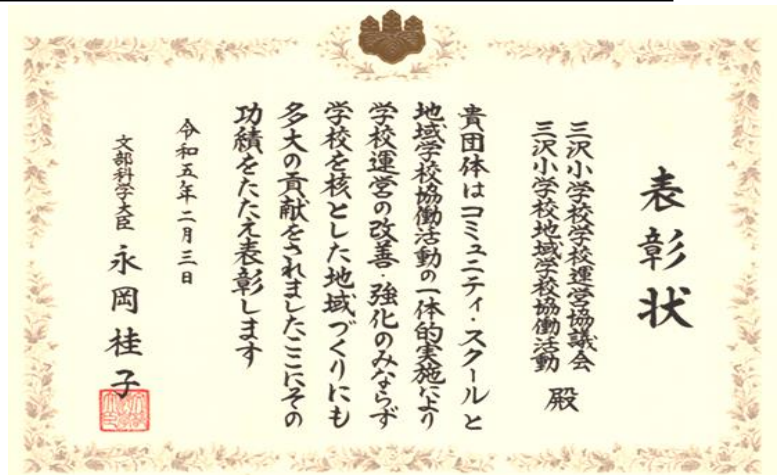 表彰状
三沢小学校学校運営協議会
三沢小学校地域学校協働活動
殿
貴団体はコミュニティ・スクールと
地域学校協働活動の一体的実施により
学校運営の改善・強化のみならず
学校を核とした地域づくりにも
多大の貢献をされましたここにその
功績をたたえ表彰します
令和五年二月三日
文部科学大臣 永岡桂子